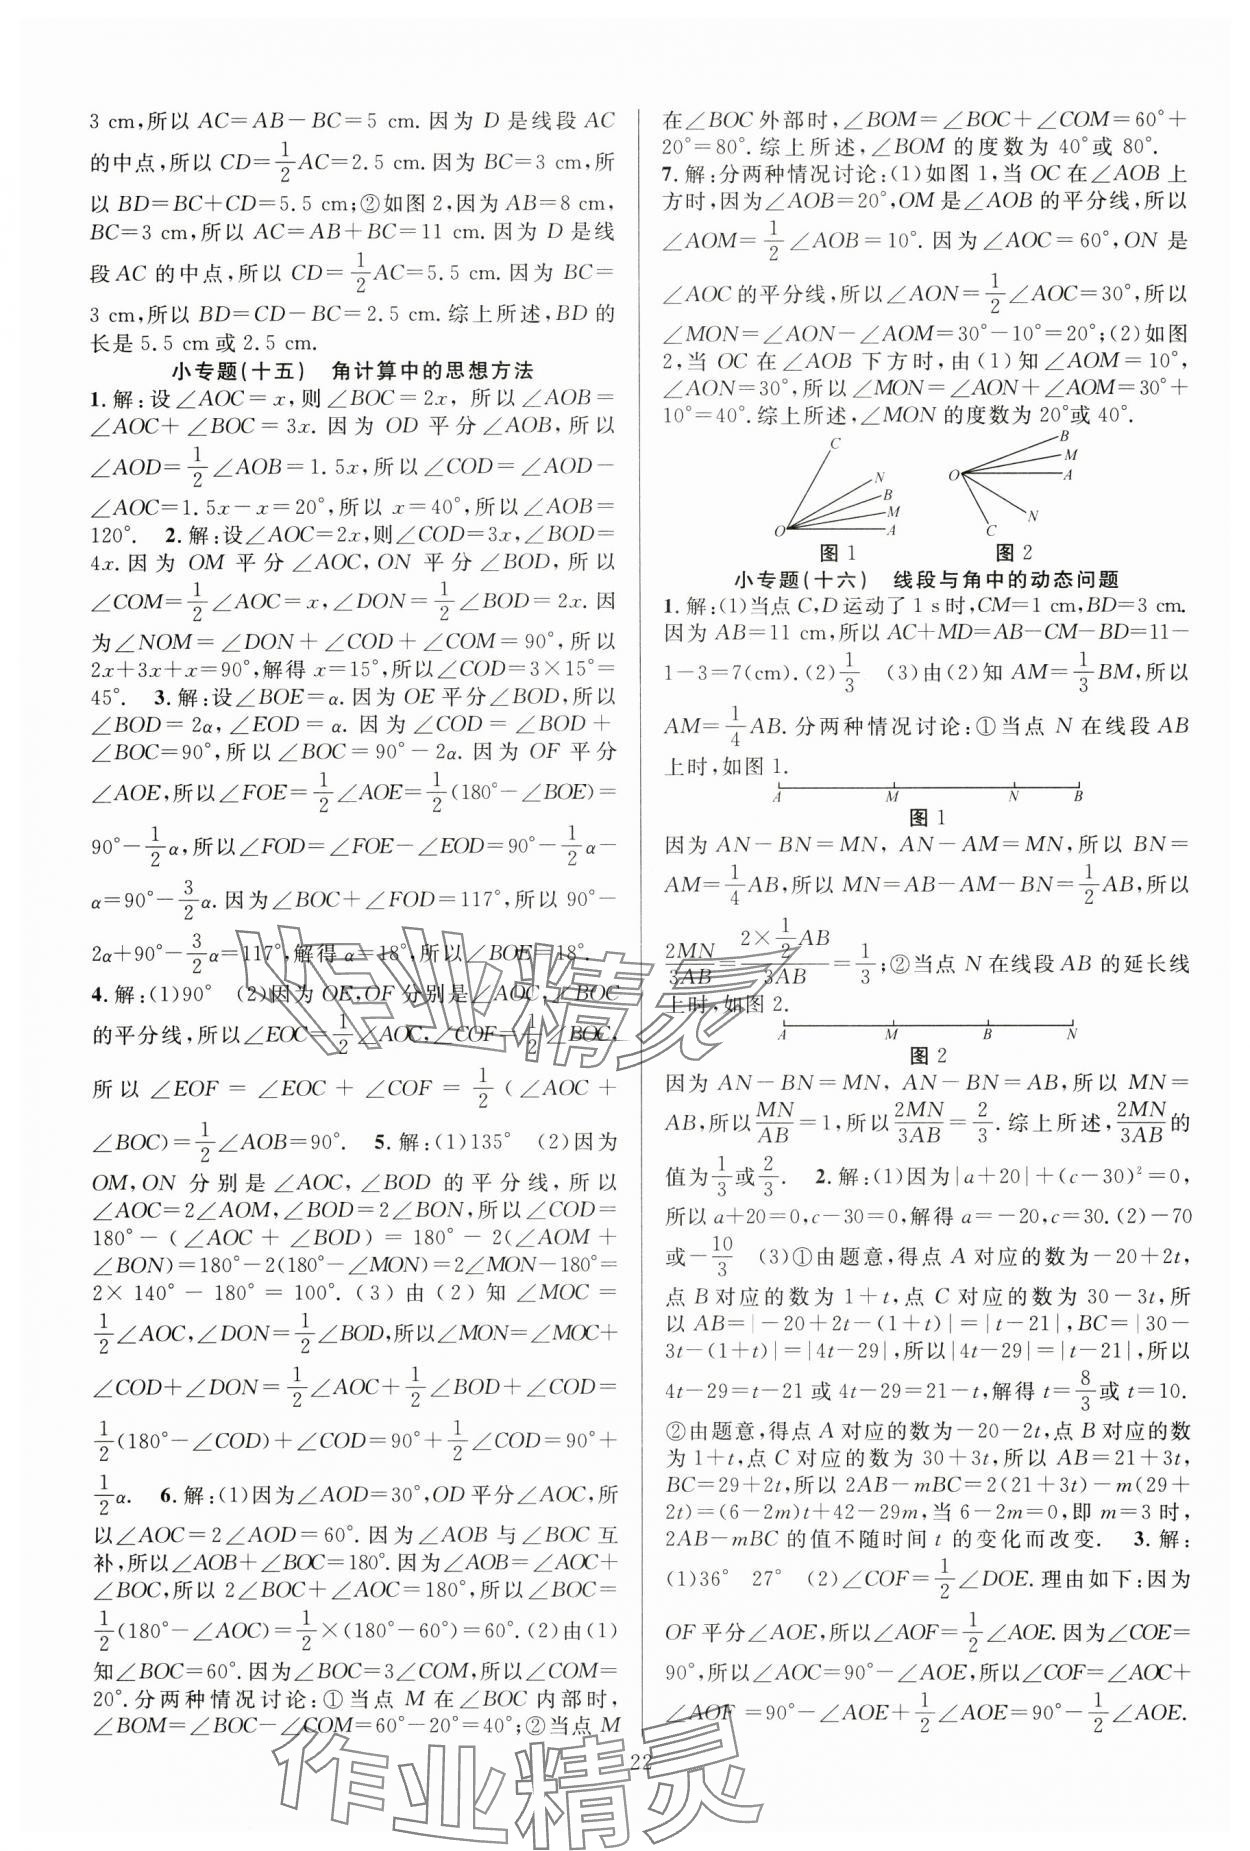 3 cm,所以 AC=AB-BC=5 cm.因为 D 是线段 AC
的中点,所以 CD=1/2AC=2.5 cm.因为 BC=3 cm,所
以 BD=BC+CD=5.5 cm;②如图 2,因为 AB=8 cm,
BC=3 cm,所以 AC=AB+BC=11 cm.因为 D 是线
段 AC 的中点,所以 CD=1/2AC=5.5 cm.因为 BC=
3 cm,所以 BD=CD-BC=2.5 cm.综上所述,BD 的
长是 5.5 cm 或 2.5 cm.
小专题(十五) 角计算中的思想方法
1.解:设∠AOC=x,则∠BOC=2x,所以∠AOB=
∠AOC+∠BOC=3x.因为 OD 平分∠AOB,所以
∠AOD=1/2∠AOB=1.5x,所以∠COD=∠AOD-
∠AOC=1.5x-x=20°,所以 x=40°,所以∠AOB=
120°. 2.解:设∠AOC=2x,则∠COD=3x,∠BOD=
4x.因为 OM 平分∠AOC,ON 平分∠BOD,所以
∠COM=1/2∠AOC=x,∠DON=1/2∠BOD=2x.因
为∠NOM=∠DON+∠COD+∠COM=90°,所以
2x+3x+x=90°,解得 x=15°,所以∠COD=3×15°=
45°. 3.解:设∠BOE=α.因为 OE 平分∠BOD,所以
∠BOD=2α,∠EOD=α.因为∠COD=∠BOD+
∠BOC=90°,所以∠BOC=90°-2α.因为 OF 平分
∠AOE,所以∠FOE=1/2∠AOE=1/2(180°-∠BOE)=
90°-1/2α,所以∠FOD=∠FOE-∠EOD=90°-1/2α-
α=90°-3/2α.因为∠BOC+∠FOD=117°,所以 90°-
2α+90°-3/2α=117°,解得 α=18°,所以∠BOE=18°.
4.解:(1)90° (2)因为 OE,OF 分别是∠AOC,∠BOC
的平分线,所以∠EOC=1/2∠AOC,∠COF=1/2∠BOC,
所以∠EOF=∠EOC+∠COF=1/2(∠AOC+
∠BOC)=1/2∠AOB=90°. 5.解:(1)135° (2)因为
OM,ON 分别是∠AOC,∠BOD 的平分线,所以
∠AOC=2∠AOM,∠BOD=2∠BON,所以∠COD=
180°-(∠AOC+∠BOD)=180°-2(∠AOM+
∠BON)=180°-2(180°-∠MON)=2∠MON-180°=
2×140°-180°=100°.(3)由(2)知∠MOC=
1/2∠AOC,∠DON=1/2∠BOD,所以∠MON=∠MOC+
∠COD+∠DON=1/2∠AOC+1/2∠BOD+∠COD=
1/2(180°-∠COD)+∠COD=90°+1/2∠COD=90°+
1/2α. 6.解:(1)因为∠AOD=30°,OD 平分∠AOC,所
以∠AOC=2∠AOD=60°.因为∠AOB 与∠BOC 互
补,所以∠AOB+∠BOC=180°.因为∠AOB=∠AOC+
∠BOC,所以 2∠BOC+∠AOC=180°,所以∠BOC=
1/2(180°-∠AOC)=1/2×(180°-60°)=60°.(2)由(1)
知∠BOC=60°.因为∠BOC=3∠COM,所以∠COM=
20°.分两种情况讨论:①当点 M 在∠BOC 内部时,
∠BOM=∠BOC-∠COM=60°-20°=40°;②当点 M
在∠BOC 外部时,∠BOM=∠BOC+∠COM=60°+
20°=80°.综上所述,∠BOM 的度数为 40°或 80°.
7.解:分两种情况讨论:(1)如图 1,当 OC 在∠AOB 上
方时,因为∠AOB=20°,OM 是∠AOB 的平分线,所以
∠AOM=1/2∠AOB=10°.因为∠AOC=60°,ON 是
∠AOC 的平分线,所以∠AON=1/2∠AOC=30°,所以
∠MON=∠AON-∠AOM=30°-10°=20°;(2)如图
2,当 OC 在∠AOB 下方时,由(1)知∠AOM=10°,
∠AON=30°,所以∠MON=∠AON+∠AOM=30°+
10°=40°.综上所述,∠MON 的度数为 20°或 40°.
C N B M A O
B M A O N C
图 1 图 2
小专题(十六) 线段与角中的动态问题
1.解:(1)当点 C,D 运动了 1 s 时,CM=1 cm,BD=3 cm.
因为 AB=11 cm,所以 AC+MD=AB-CM-BD=11-
1-3=7(cm).(2)1/3 (3)由(2)知 AM=1/3BM,所以
AM=1/4AB.分两种情况讨论:①当点 N 在线段 AB
上时,如图 1.
A M N B
图 1
因为 AN-BN=MN,AN-AM=MN,所以 BN=
AM=1/4AB,所以 MN=AB-AM-BN=1/2AB,所以
2MN/3AB=(2×1/2AB)/3AB=1/3;②当点 N 在线段 AB 的延长线
上时,如图 2.
A M B N
图 2
因为 AN-BN=MN,AN-BN=AB,所以 MN=
AB,所以MN/AB=1,所以2MN/3AB=2/3.综上所述,2MN/3AB的
值为1/3或2/3. 2.解:(1)因为|a+20|+(c-30)²=0,
所以 a+20=0,c-30=0,解得 a=-20,c=30.(2)-70
或-10/3 (3)①由题意,得点 A 对应的数为-20+2t,
点 B 对应的数为 1+t,点 C 对应的数为 30-3t,所
以 AB=|-20+2t-(1+t)|=|t-21|,BC=|30-
3t-(1+t)|=|4t-29|,所以|4t-29|=|t-21|,所以
4t-29=t-21 或 4t-29=21-t,解得 t=8/3或 t=10.
②由题意,得点 A 对应的数为-20-2t,点 B 对应的数
为 1+t,点 C 对应的数为 30+3t,所以 AB=21+3t,
BC=29+2t,所以 2AB-mBC=2(21+3t)-m(29+
2t)=(6-2m)t+42-29m,当 6-2m=0,即 m=3 时,
2AB-mBC 的值不随时间 t 的变化而改变. 3.解:
(1)36° 27° (2)∠COF=1/2∠DOE.理由如下:因为
OF 平分∠AOE,所以∠AOF=1/2∠AOE.因为∠COE=
90°,所以∠AOC=90°-∠AOE,所以∠COF=∠AOC+
∠AOF=90°-∠AOE+1/2∠AOE=90°-1/2∠AOE.
22
作业精灵
作业精灵